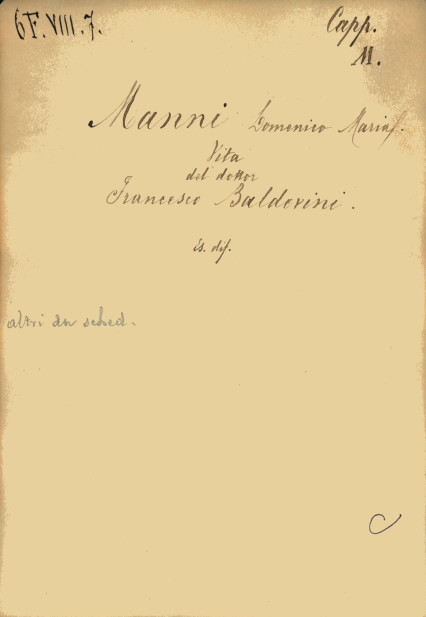 6F.VIII.7.
Capp.
M.
Manni Domenico Maria.
Vita
del dottor
Francesco Baldovini.
Es. dif.
altri da sched.
C